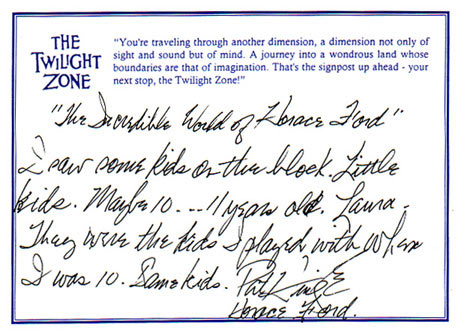 THE
TWILIGHT
ZONE
"You're traveling through another dimension, a dimension not only of
sight and sound but of mind. A journey into a wondrous land whose
boundaries are that of imagination. That's the signpost up ahead - your
next stop, the Twilight Zone!"
"The Incredible World of Horace Ford"
I saw some kids on the block. Little
kids. Maybe 10 --- 11 years old. Laura -
They were the kids I played with when
I was 10. Same kids. Pat Hingle
Horace Ford.